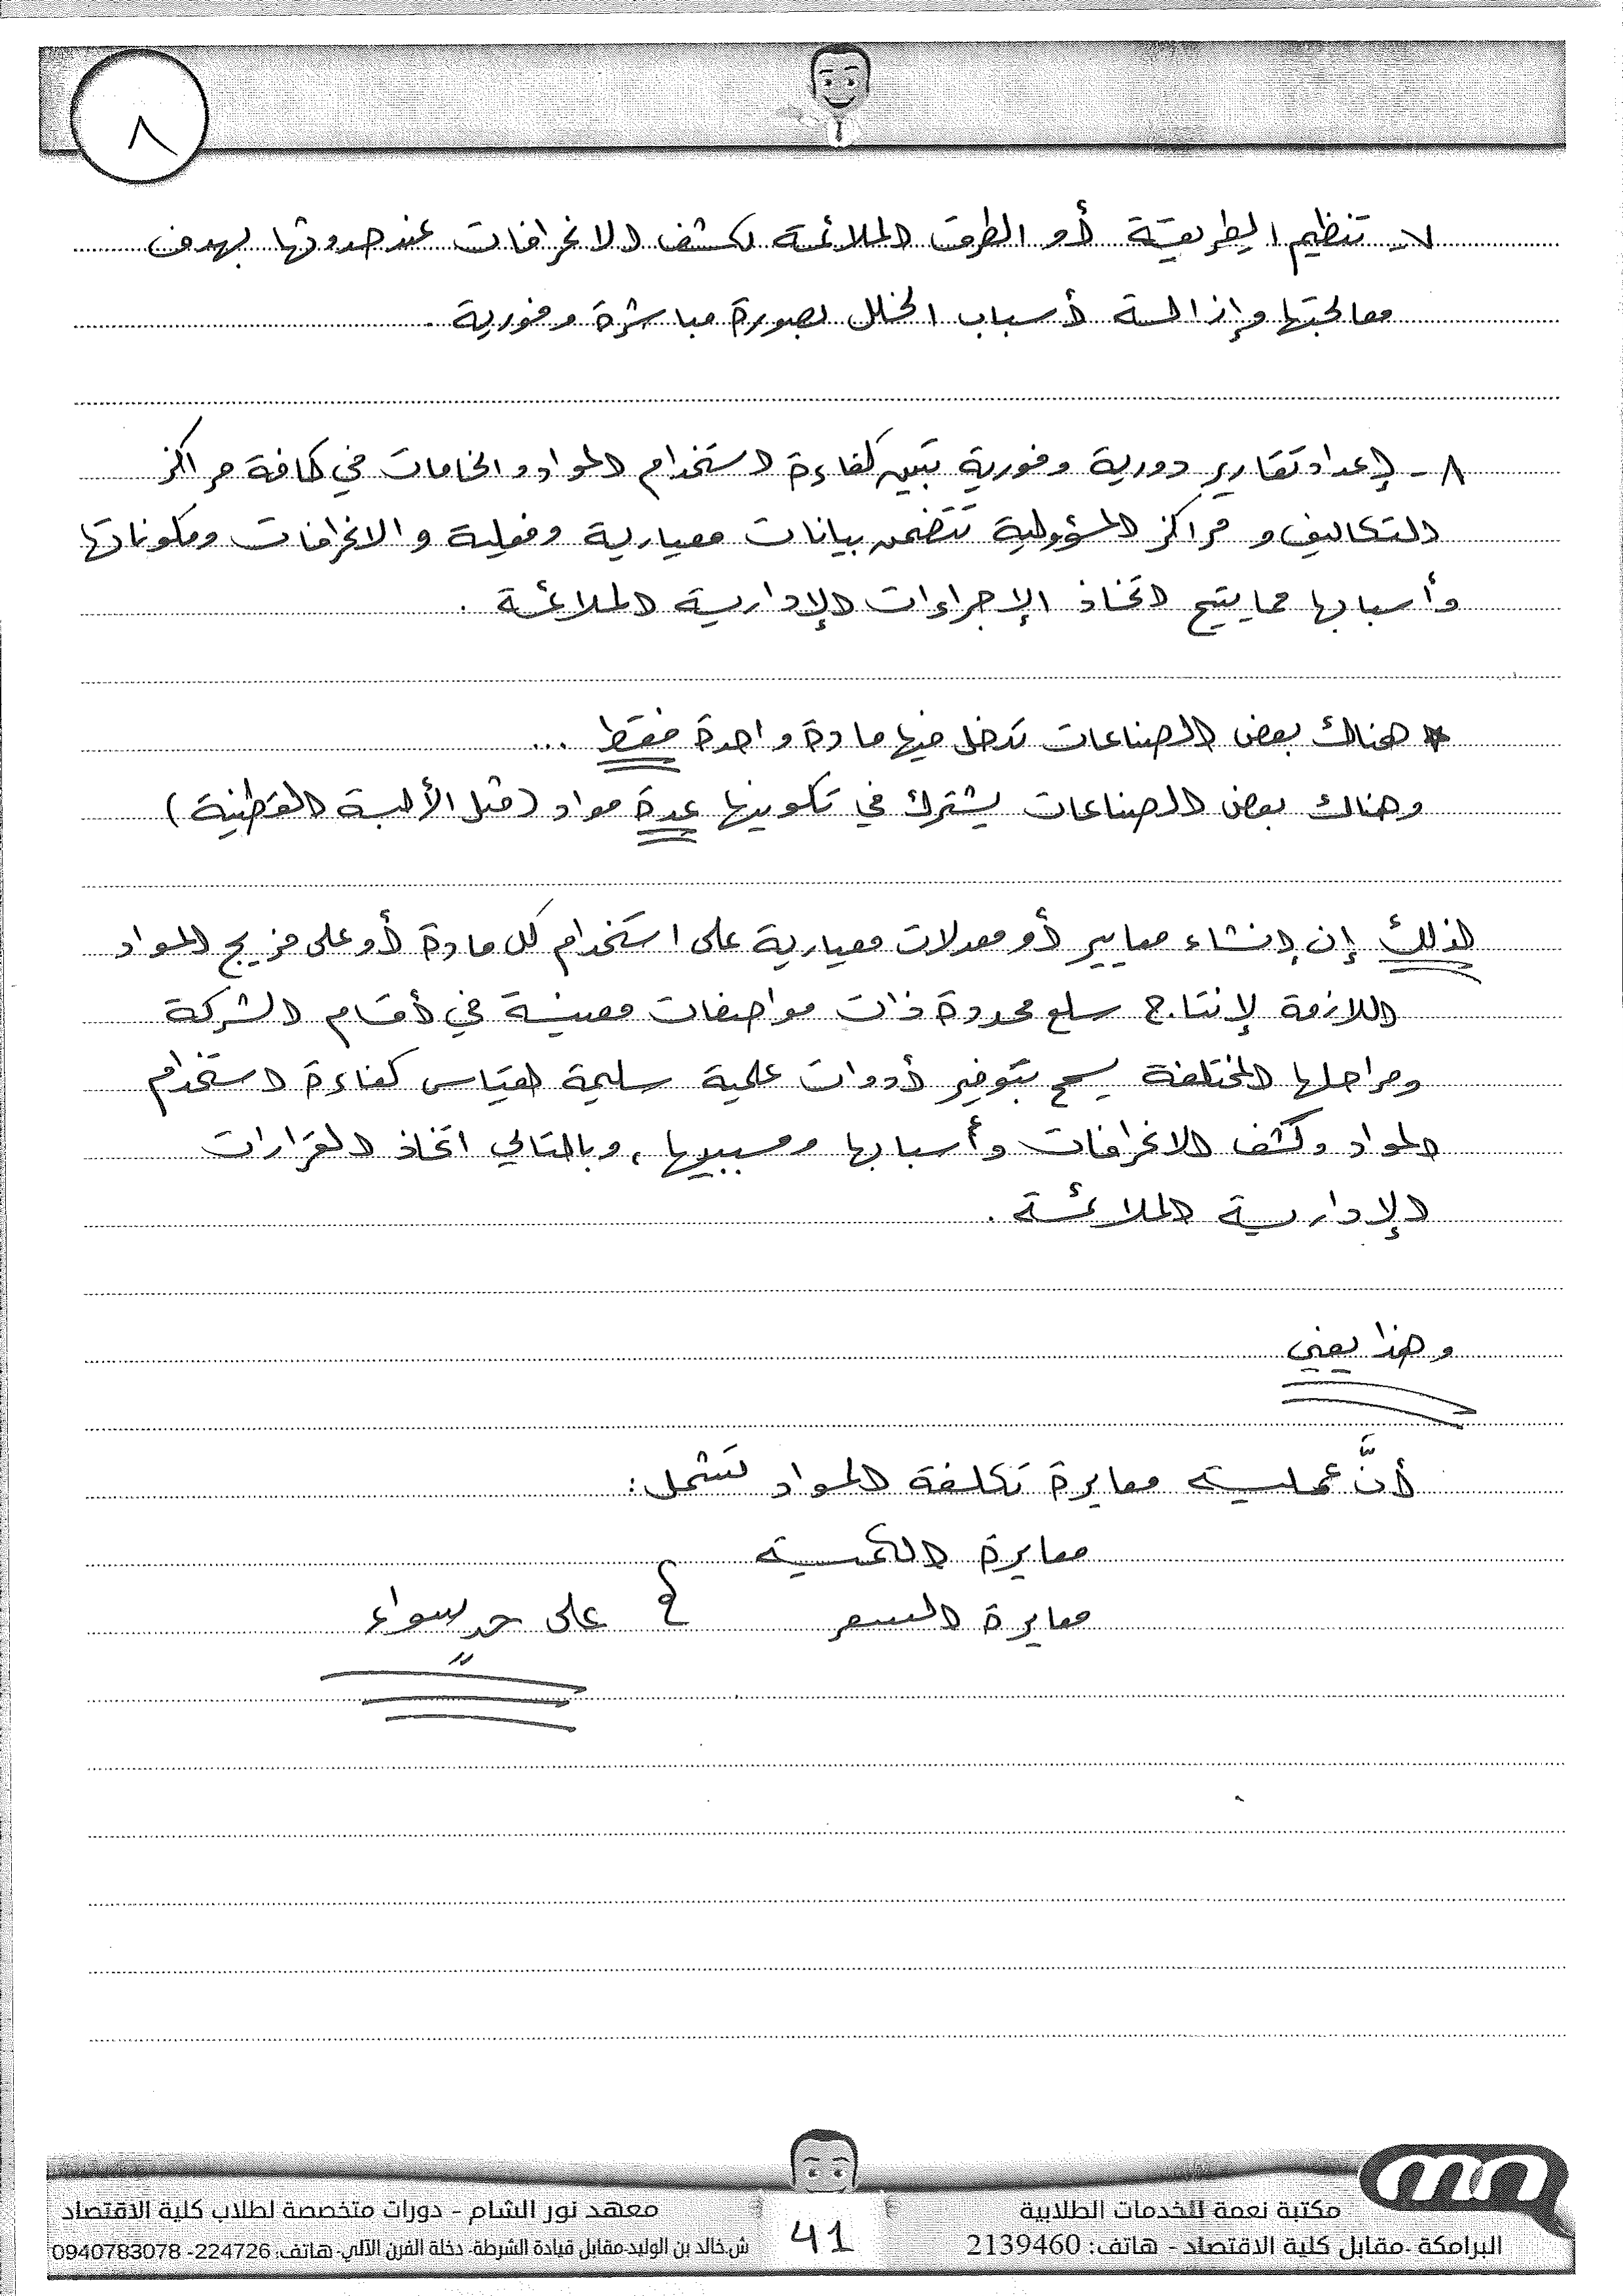 ٨
٧- تنظيم الطريقة أو الطرق الملائمة لكشف الانحرافات عند حدوثها بهدف
معالجتها وإزالة أسباب الخلل بصورة مباشرة وفورية .
٨- إعداد تقارير دورية وفورية تبين كفاءة استخدام المواد والخامات في كافة مراكز
التكاليف و مراكز المسؤولية تتضمن بيانات معيارية وفعلية و الانحرافات ومكوناتها
وأسبابها مما يتيح اتخاذ الإجراءات الإدارية الملائمة .
* هناك بعض الصناعات تدخل فيها مادة واحدة فقط ...
وهناك بعض الصناعات يشترك في تكوينها عدة مواد (مثل الألبسة القطنية)
لذلك إن إنشاء معايير أو معدلات معيارية على استخدام كل مادة أو على مزيج المواد
اللازمة لإنتاج سلع محدودة ذات مواصفات معينة في أقسام الشركة
ومراحلها المختلفة يسمح بتوفير أدوات علمية سليمة لقياس كفاءة استخدام
المواد وكشف الانحرافات وأسبابها ومسببيها ، وبالتالي اتخاذ القرارات
الإدارية الملائمة .
وهذا يعني
أنَّ عملية معايرة تكلفة المواد تشمل :
معايرة الكمية
معايرة السعر } على حد سواء
مكتبة نعمة للخدمات الطلابية
البرامكة -مقابل كلية الاقتصاد - هاتف: 2139460
41
معهد نور الشام - دورات متخصصة لطلاب كلية الاقتصاد
ش.خالد بن الوليد-مقابل قيادة الشرطة- دخلة الفرن الآلي- هاتف: 224726- 0940783078